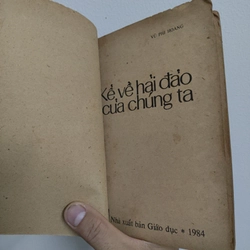 VŨ PHI HOÀNG
Kể về hải đảo
của chúng ta
Nhà xuất bản Giáo dục * 1984